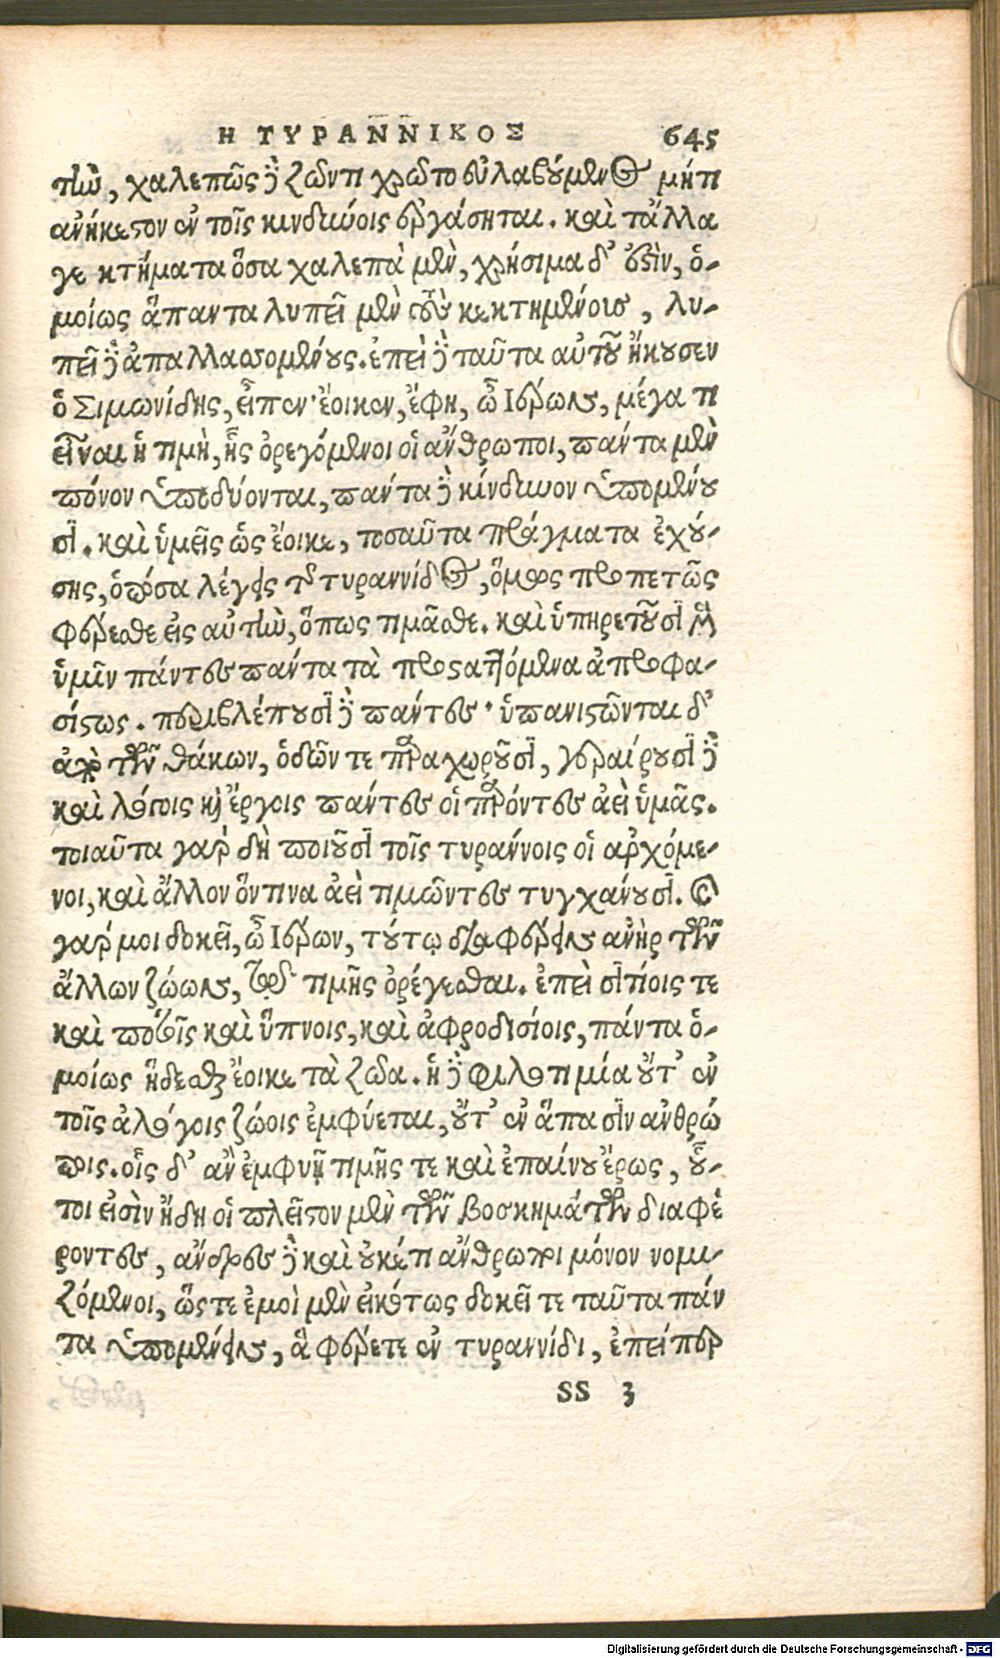 Η ΤΥΡΑΝΝΙΚΟΣ 645
τὴν, χαλεπῶς δὲ ζῶντι χρῷτο εὐλαβούμενος μή τι
ἀνήκεστον ἐν τοῖς κινδύνοις ἐργάσηται. καὶ τἄλλα
γε κτήματα ὅσα χαλεπὰ μὲν, χρήσιμα δ' ἐστὶν, ὁ-
μοίως ἅπαντα λυπεῖ μὲν τοὺς κεκτημένους, λυ-
πεῖ δὲ ἀπαλλασσομένους. ἐπεὶ δὲ ταῦτα αὐτοῦ ἤκουσεν
ὁ Σιμωνίδης, εἶπεν· ἔοικεν, ἔφη, ὦ Ἱέρων, μέγα τι
εἶναι ἡ τιμὴ, ἧς ὀρεγόμενοι οἱ ἄνθρωποι, πάντα μὲν
πόνον ὑποδύονται, πάντα δὲ κίνδυνον ὑπομένου
σι. καὶ ὑμεῖς ὡς ἔοικε, τοσαῦτα πράγματα ἐχού-
σης, ὁπόσα λέγεις τῆς τυραννίδος, ὅμως προπετῶς
φέρεσθε εἰς αὐτὴν, ὅπως τιμᾶσθε. καὶ ὑπηρετοῦσι μὲν
ὑμῖν πάντες πάντα τὰ προσταττόμενα ἀπροφα-
σίστως. περιβλέπουσι δὲ πάντες· ὑπανιστῶνται δ'
ἀπὸ τῶν θάκων, ὁδῶν τε παραχωροῦσι, γεραίρουσι δὲ
καὶ λόγοις καὶ ἔργοις πάντες οἱ παρόντες ἀεὶ ὑμᾶς.
τοιαῦτα γὰρ δὴ ποιοῦσι τοῖς τυράννοις οἱ ἀρχόμε-
νοι, καὶ ἄλλον ὅντινα ἀεὶ τιμῶντες τυγχάνουσι. καὶ
γάρ μοι δοκεῖ, ὦ Ἱέρων, τούτῳ διαφέρειν ἀνὴρ τῶν
ἄλλων ζώων, τῷ τιμῆς ὀρέγεσθαι. ἐπεὶ σιτίοις τε
καὶ ποτοῖς καὶ ὕπνοις, καὶ ἀφροδισίοις, πάντα ὁ-
μοίως ἥδεσθαι ἔοικε τὰ ζῶα. ἡ δὲ φιλοτιμία οὔτ' ἐν
τοῖς ἀλόγοις ζώοις ἐμφύεται, οὔτ' ἐν ἅπασιν ἀνθρώ
ποις. οἷς δ' ἂν ἐμφυῇ τιμῆς τε καὶ ἐπαίνου ἔρως, οὗ-
τοι εἰσὶν ἤδη οἱ πλεῖστον μὲν τῶν βοσκημάτων διαφέ
ροντες, ἄνδρες δὲ καὶ οὐκέτι ἄνθρωποι μόνον νομι-
ζόμενοι, ὥστε ἐμοὶ μὲν εἰκότως δοκεῖτε ταῦτα πάν
τα ὑπομένειν, ἃ φέρετε ἐν τυραννίδι, ἐπείπερ
SS 3
Digitalisierung gefördert durch die Deutsche Forschungsgemeinschaft - DFG